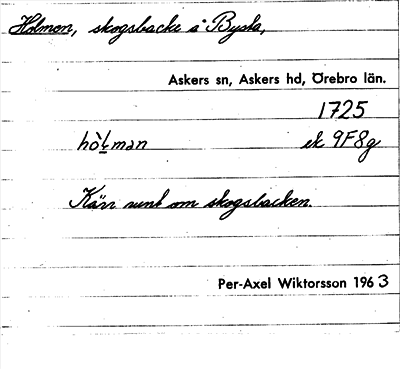 Holmon, skogsbacke å Bysta,
Askers sn, Askers hd, Örebro län.
1725
hò̱lmən ek 9F8g
Kärr runt om skogsbacken.
Per-Axel Wiktorsson 1963